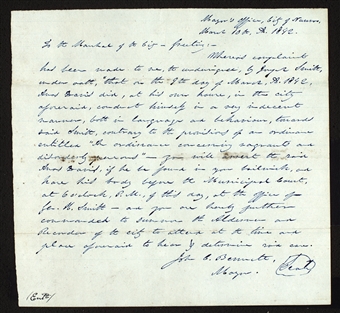 Mayor's Office, City of Nauvoo,
March 10th A.D. 1842.
To the Marshal of the City — Greeting: —
Whereas complaint
has been made to me, the undersigned, by Joseph Smith,
under oath, "that on the 9th day of March, A.D. 1842,
Amos Davis did, at his own house, in the city
aforesaid, conduct himself in a very indecent
manner, both in language and behaviour, towards
said Smith, contrary to the provisions of an ordinance
entitled "An ordinance concerning vagrants and
disorderly persons" — you will arrest the said
Amos Davis, if he be found in your bailiwick, and
have his body before the Municipal Court,
at o'clock, P.M. of this day, at the office of
H. Smith — and you are hereby further
commanded to summon the Aldermen and
Recorder of the city to attend at the time and
place aforesaid to hear & determine said case.
John C. Bennett,
Mayor. (Seal)